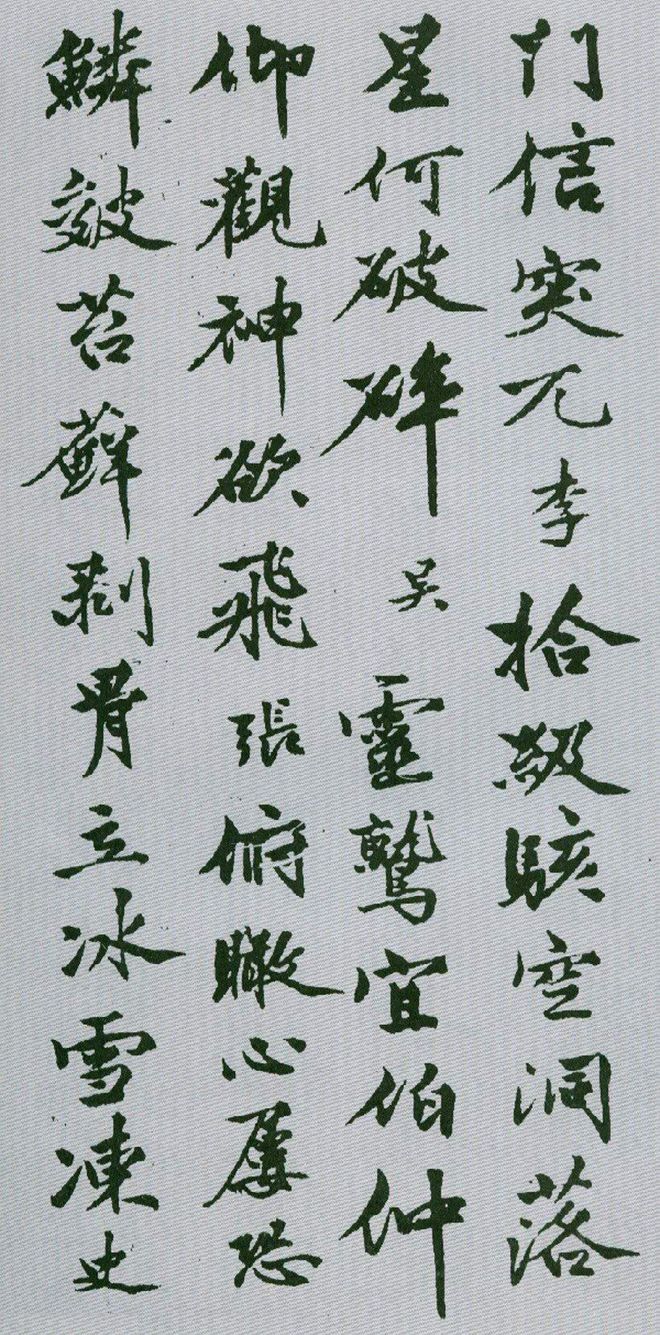 門信突兀李拾級駭空洞落
星何破碎吴靈鷲宜伯仲
仰觀神欲飛張俯瞰心屡恐
鱗皴苔蘚剥骨立冰雪凍史